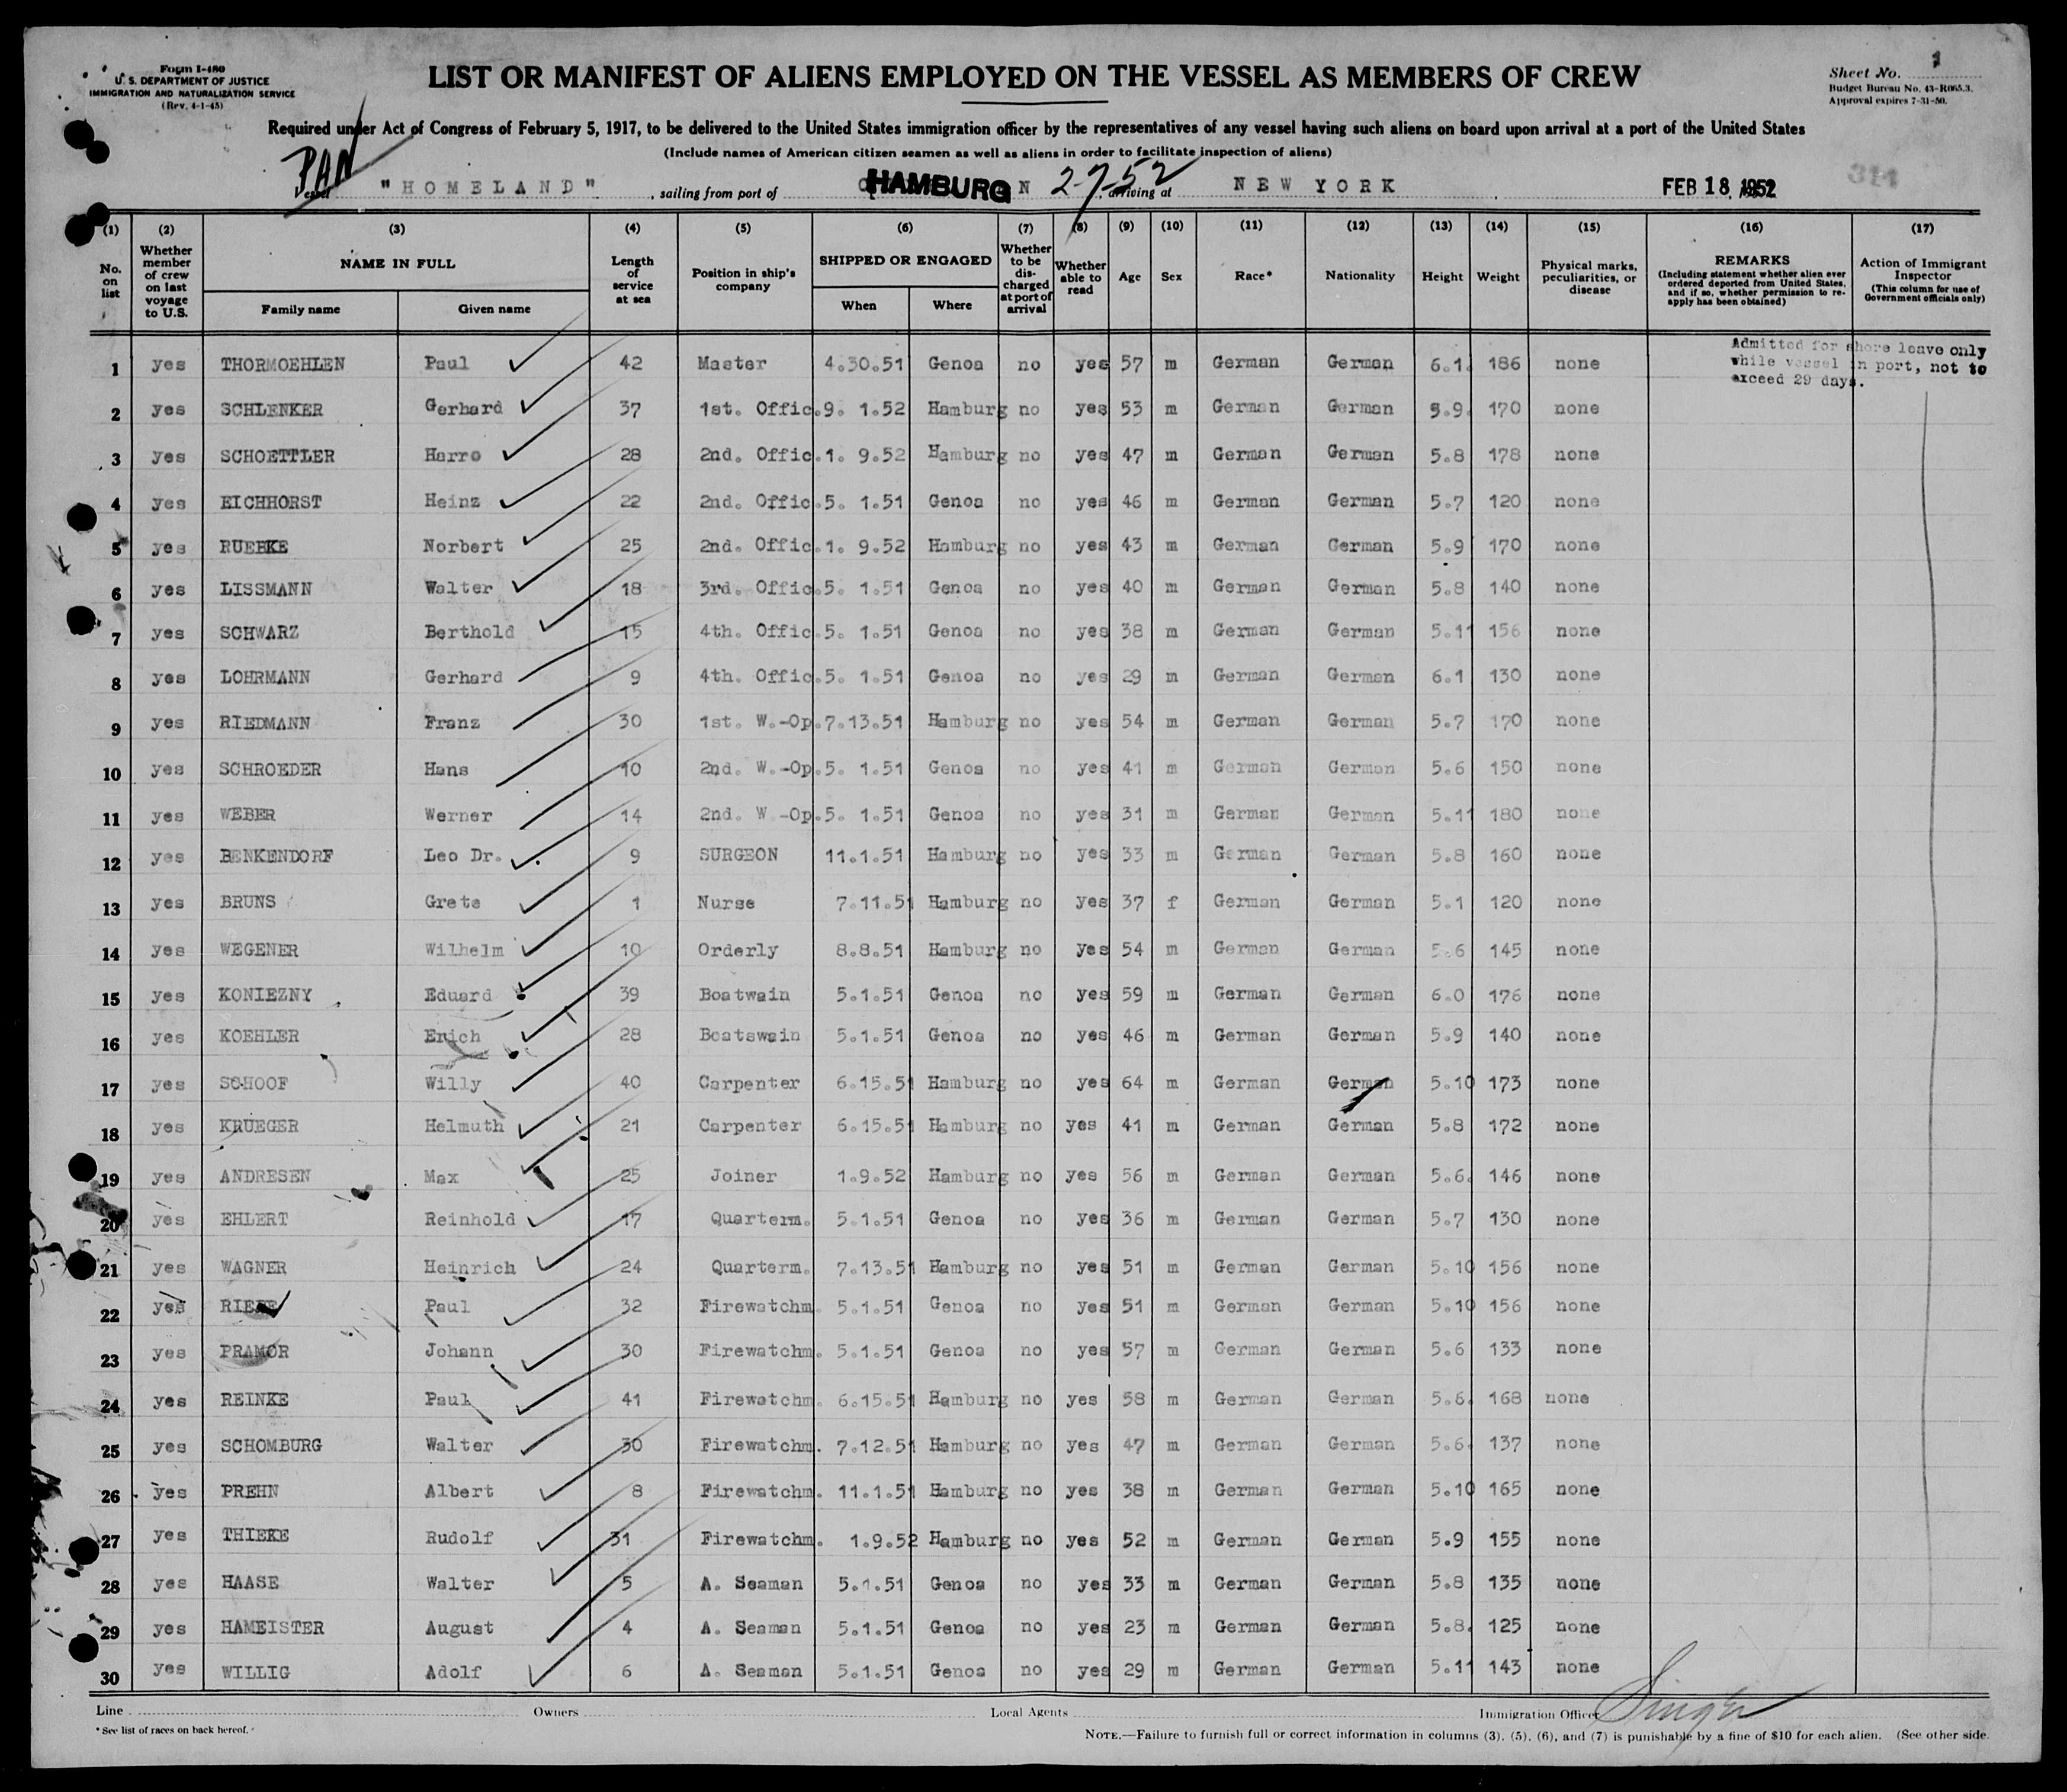 Form I-480
U. S. DEPARTMENT OF JUSTICE
IMMIGRATION AND NATURALIZATION SERVICE
(Rev. 4-1-45)
LIST OR MANIFEST OF ALIENS EMPLOYED ON THE VESSEL AS MEMBERS OF CREW
Sheet No. 1
Budget Bureau No. 43-R065.3.
Approval expires 7-31-50.
Required under Act of Congress of February 5, 1917, to be delivered to the United States immigration officer by the representatives of any vessel having such aliens on board upon arrival at a port of the United States
(Include names of American citizen seamen as well as aliens in order to facilitate inspection of aliens)
PAN
Vessel "HOMELAND", sailing from port of HAMBURG N 2-7-52, arriving at NEW YORK FEB 18, 1952
314
(1) No. on list
(2) Whether member of crew on last voyage to U.S.
(3) NAME IN FULL Family name Given name
(4) Length of service at sea
(5) Position in ship's company
(6) SHIPPED OR ENGAGED When Where
(7) Whether to be discharged at port of arrival
(8) Whether able to read
(9) Age
(10) Sex
(11) Race*
(12) Nationality
(13) Height
(14) Weight
(15) Physical marks, peculiarities, or disease
(16) REMARKS (Including statement whether alien ever ordered deported from United States, and if so, whether permission to re-apply has been obtained)
(17) Action of Immigrant Inspector (This column for use of Government officials only)
Admitted for shore leave only
while vessel in port, not to
exceed 29 days.
1 yes THORMOEHLEN Paul 42 Master 4.30.51 Genoa no yes 57 m German German 6.1. 186 none
2 yes SCHLENKER Gerhard 37 1st. Offic. 9. 1.52 Hamburg no yes 53 m German German 5.9. 170 none
3 yes SCHOETTLER Harro 28 2nd. Offic. 1. 9.52 Hamburg no yes 47 m German German 5.8 178 none
4 yes EICHHORST Heinz 22 2nd. Offic. 5. 1.51 Genoa no yes 46 m German German 5.7 120 none
5 yes RUEBKE Norbert 25 2nd. Offic. 1. 9.52 Hamburg no yes 43 m German German 5.9 170 none
6 yes LISSMANN Walter 18 3rd. Offic. 5. 1.51 Genoa no yes 40 m German German 5.8 140 none
7 yes SCHWARZ Berthold 15 4th. Offic. 5. 1.51 Genoa no yes 38 m German German 5.11 156 none
8 yes LOHRMANN Gerhard 9 4th. Offic. 5. 1.51 Genoa no yes 29 m German German 6.1 130 none
9 yes RIEDMANN Franz 30 1st. W.-Op. 7.13.51 Hamburg no yes 54 m German German 5.7 170 none
10 yes SCHROEDER Hans 10 2nd. W.-Op. 5. 1.51 Genoa no yes 41 m German German 5.6 150 none
11 yes WEBER Werner 14 2nd. W -Op. 5. 1.51 Genoa no yes 31 m German German 5.11 180 none
12 yes BENKENDORF Leo Dr. 9 SURGEON 11.1.51 Hamburg no yes 33 m German German 5.8 160 none
13 yes BRUNS Grete 1 Nurse 7.11.51 Hamburg no yes 37 f German German 5.1 120 none
14 yes WEGENER Wilhelm 10 Orderly 8.8.51 Hamburg no yes 54 m German German 5.6 145 none
15 yes KONIEZNY Eduard 39 Boatwain 5.1.51 Genoa no yes 59 m German German 6.0 176 none
16 yes KOEHLER Erich 28 Boatswain 5.1.51 Genoa no yes 46 m German German 5.9 140 none
17 yes SCHOOF Willy 40 Carpenter 6.15.51 Hamburg no yes 64 m German German 5.10 173 none
18 yes KRUEGER Helmuth 21 Carpenter 6.15.51 Hamburg no yes 41 m German German 5.8 172 none
19 yes ANDRESEN Max 25 Joiner 1.9.52 Hamburg no yes 56 m German German 5.6. 146 none
20 yes EHLERT Reinhold 17 Quarterm. 5.1.51 Genoa no yes 36 m German German 5.7 130 none
21 yes WAGNER Heinrich 24 Quarterm. 7.13.51 Hamburg no yes 51 m German German 5.10 156 none
22 yes Paul 32 Firewatchm. 5.1.51 Genoa no yes 51 m German German 5.10 156 none
23 yes PRAMOR Johann 30 Firewatchm. 5.1.51 Genoa no yes 57 m German German 5.6 133 none
24 yes REINKE Paul 41 Firewatchm. 6.15.51 Hamburg no yes 58 m German German 5.6. 168 none
25 yes SCHOMBURG Walter 30 Firewatchm. 7.12.51 Hamburg no yes 47 m German German 5.6. 137 none
26 yes PREHN Albert 8 Firewatchm. 11.1.51 Hamburg no yes 38 m German German 5.10 165 none
27 yes THIEKE Rudolf 31 Firewatchm. 1.9.52 Hamburg no yes 52 m German German 5.9 155 none
28 yes HAASE Walter 5 A. Seaman 5.1.51 Genoa no yes 33 m German German 5.8 135 none
29 yes HAMEISTER August 4 A. Seaman 5.1.51 Genoa no yes 23 m German German 5.8. 125 none
30 yes WILLIG Adolf 6 A. Seaman 5.1.51 Genoa no yes 29 m German German 5.11 143 none
Line Owners Local Agents Immigration Officer
* See list of races on back hereof.
NOTE.—Failure to furnish full or correct information in columns (3), (5), (6), and (7) is punishable by a fine of $10 for each alien. (See other side.